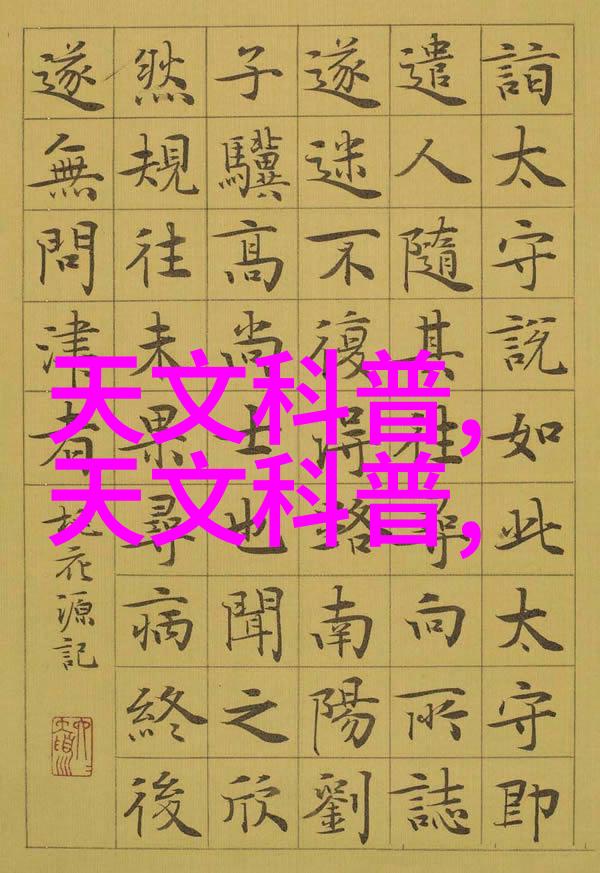 詣太守說如此太守即
遣人隨其往尋向所誌
遂迷不復得路南陽劉
子驥高尚士也聞之欣
然規往未果尋病終後
遂無問津者
桃花源記
天文科普,
天文科普,